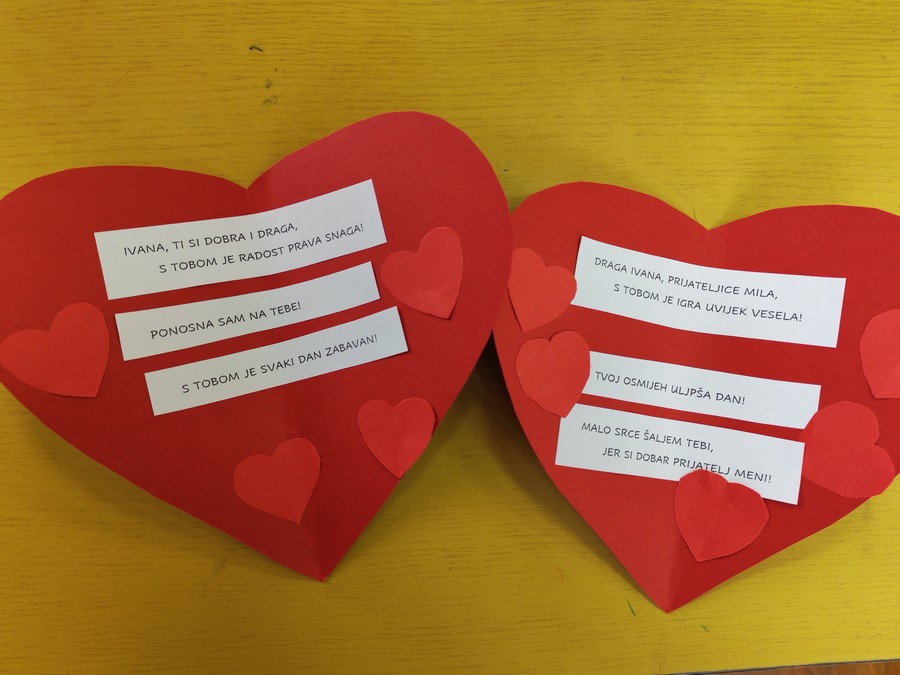 IVANA, TI SI DOBRA I DRAGA,
S TOBOM JE RADOST PRAVA SNAGA!
PONOSNA SAM NA TEBE!
S TOBOM JE SVAKI DAN ZABAVAN!
DRAGA IVANA, PRIJATELJICE MILA,
S TOBOM JE IGRA UVIJEK VESELA!
TVOJ OSMIJEH ULJPŠA DAN!
MALO SRCE ŠALJEM TEBI,
JER SI DOBAR PRIJATELJ MENI!